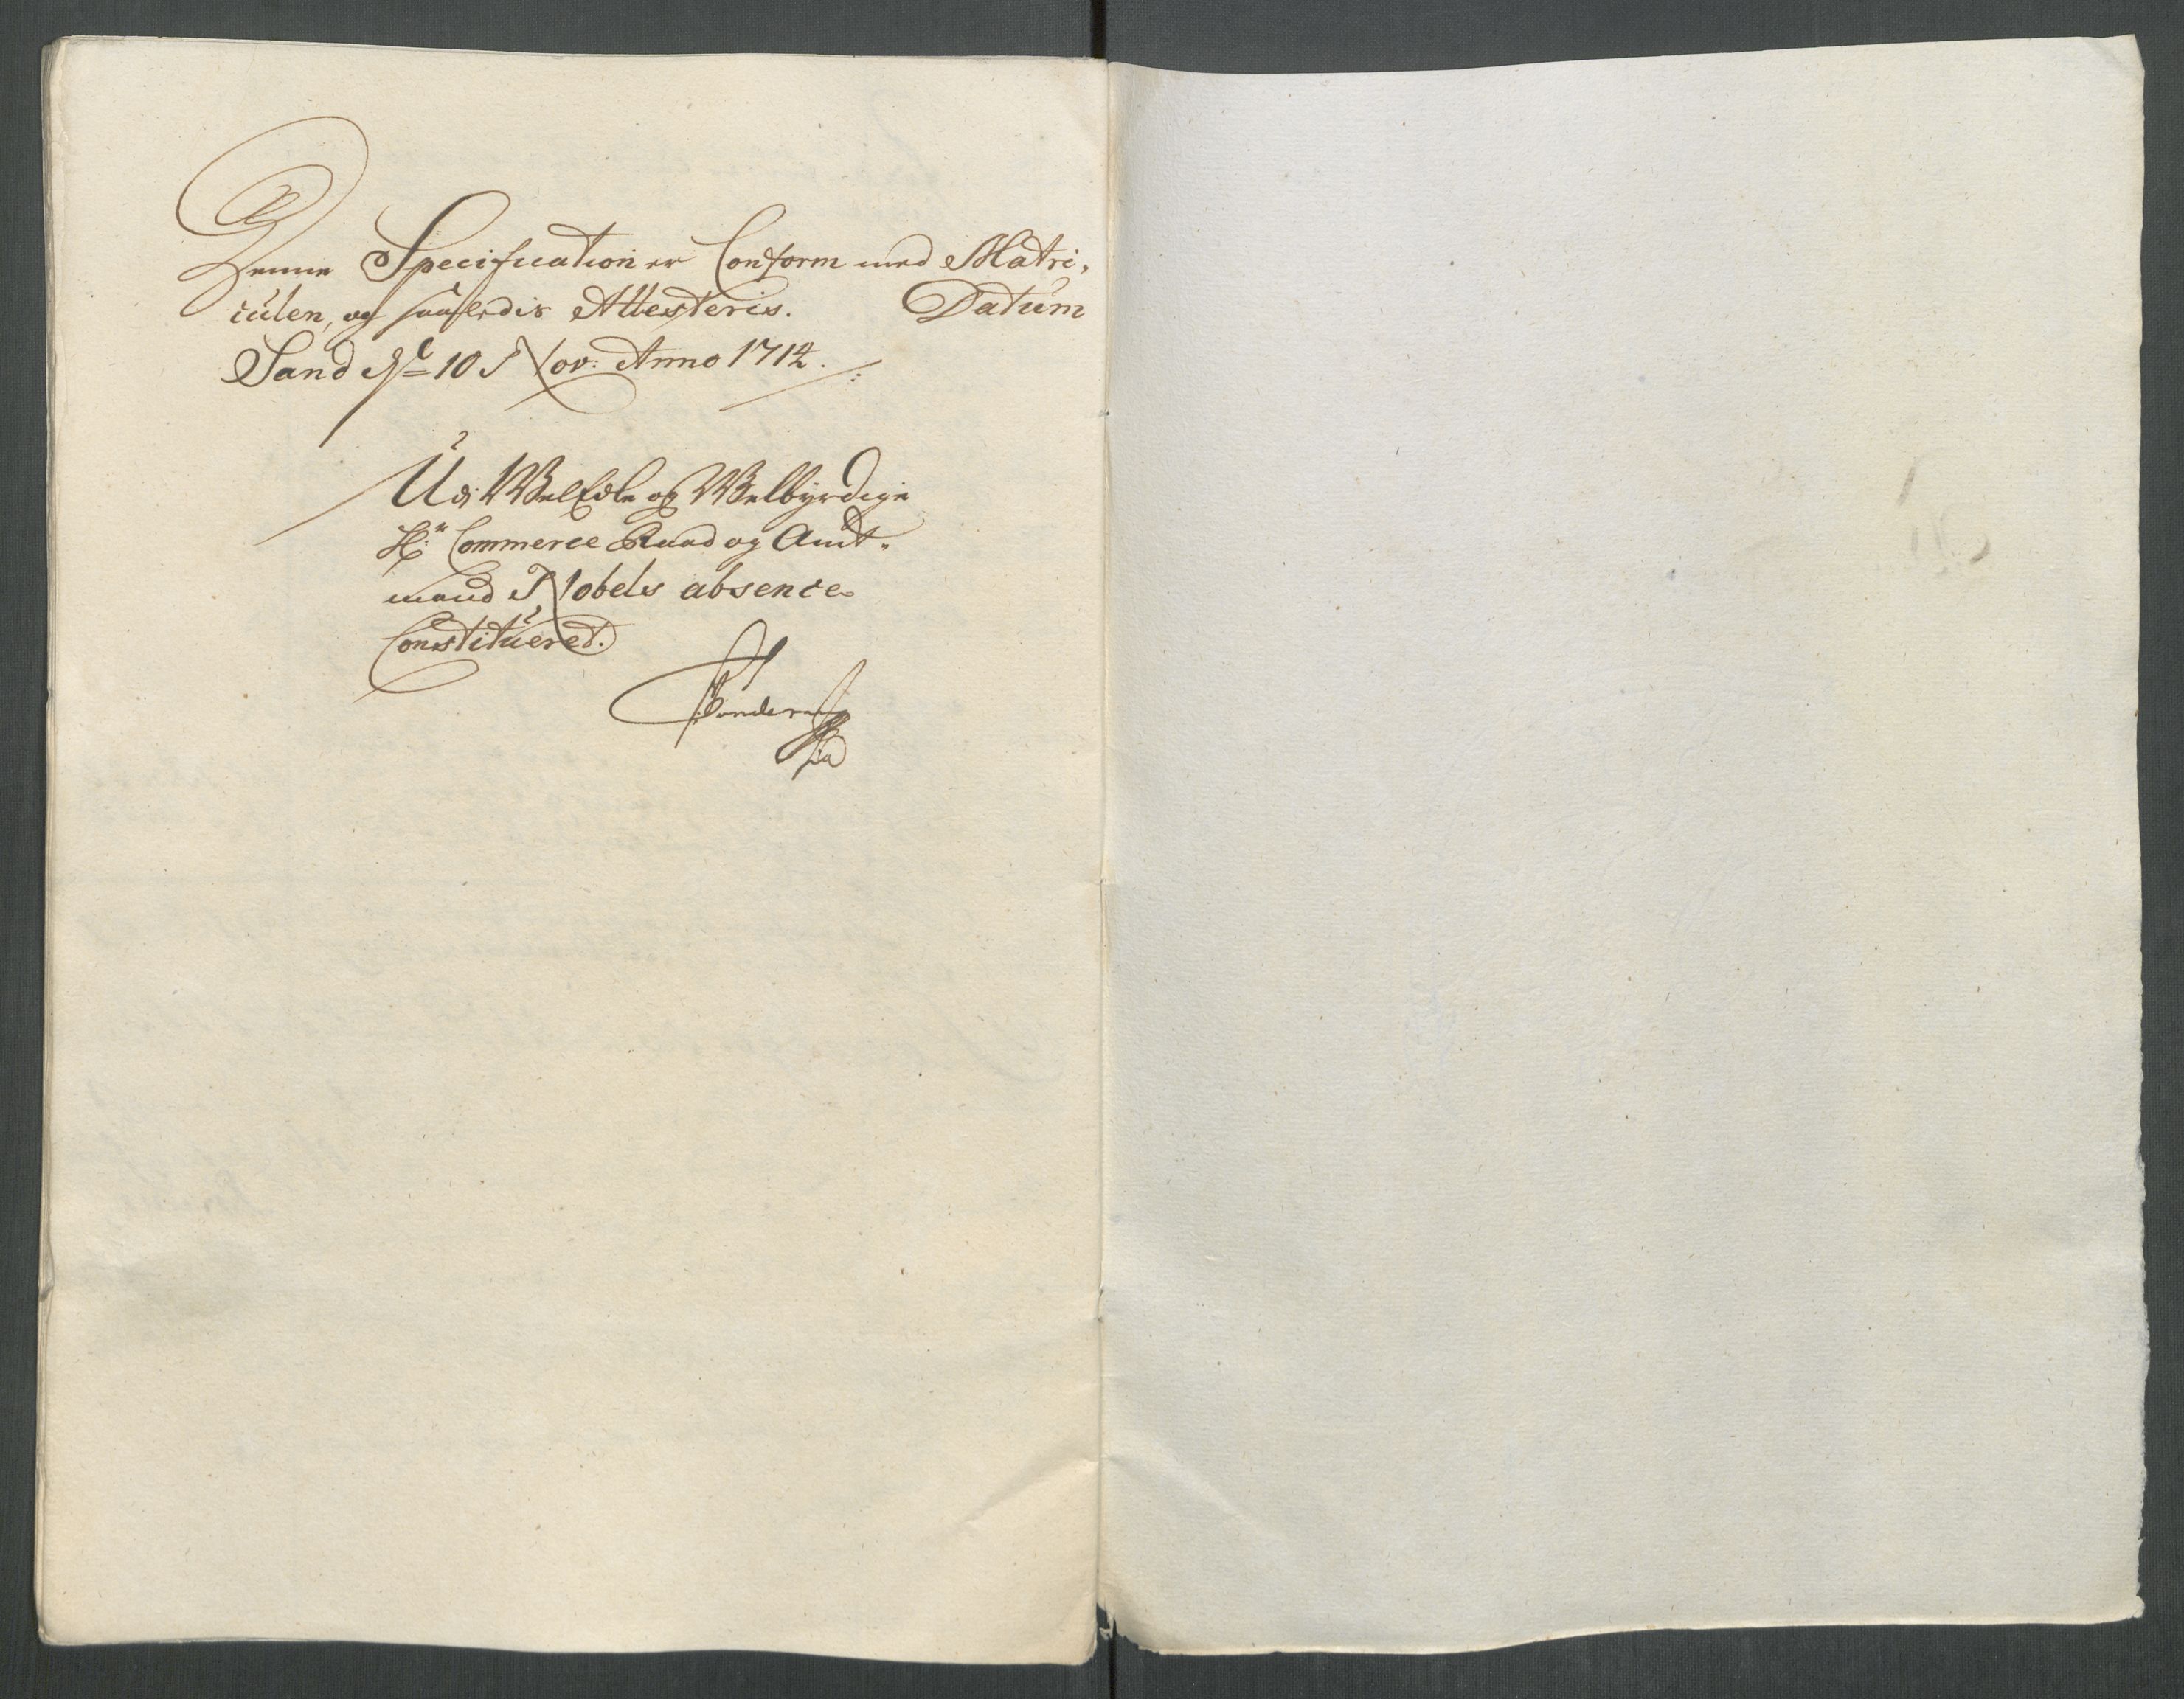 Denne Specification er Conform med Matri,
culen, og saaledis Attesteris. Datum
Sand d 10 Nov: Anno 1714.
Udi WelEdle og Welbyrdige
Hr Commerce Raad og Amt-
mand Nobels absence
Constitueret.